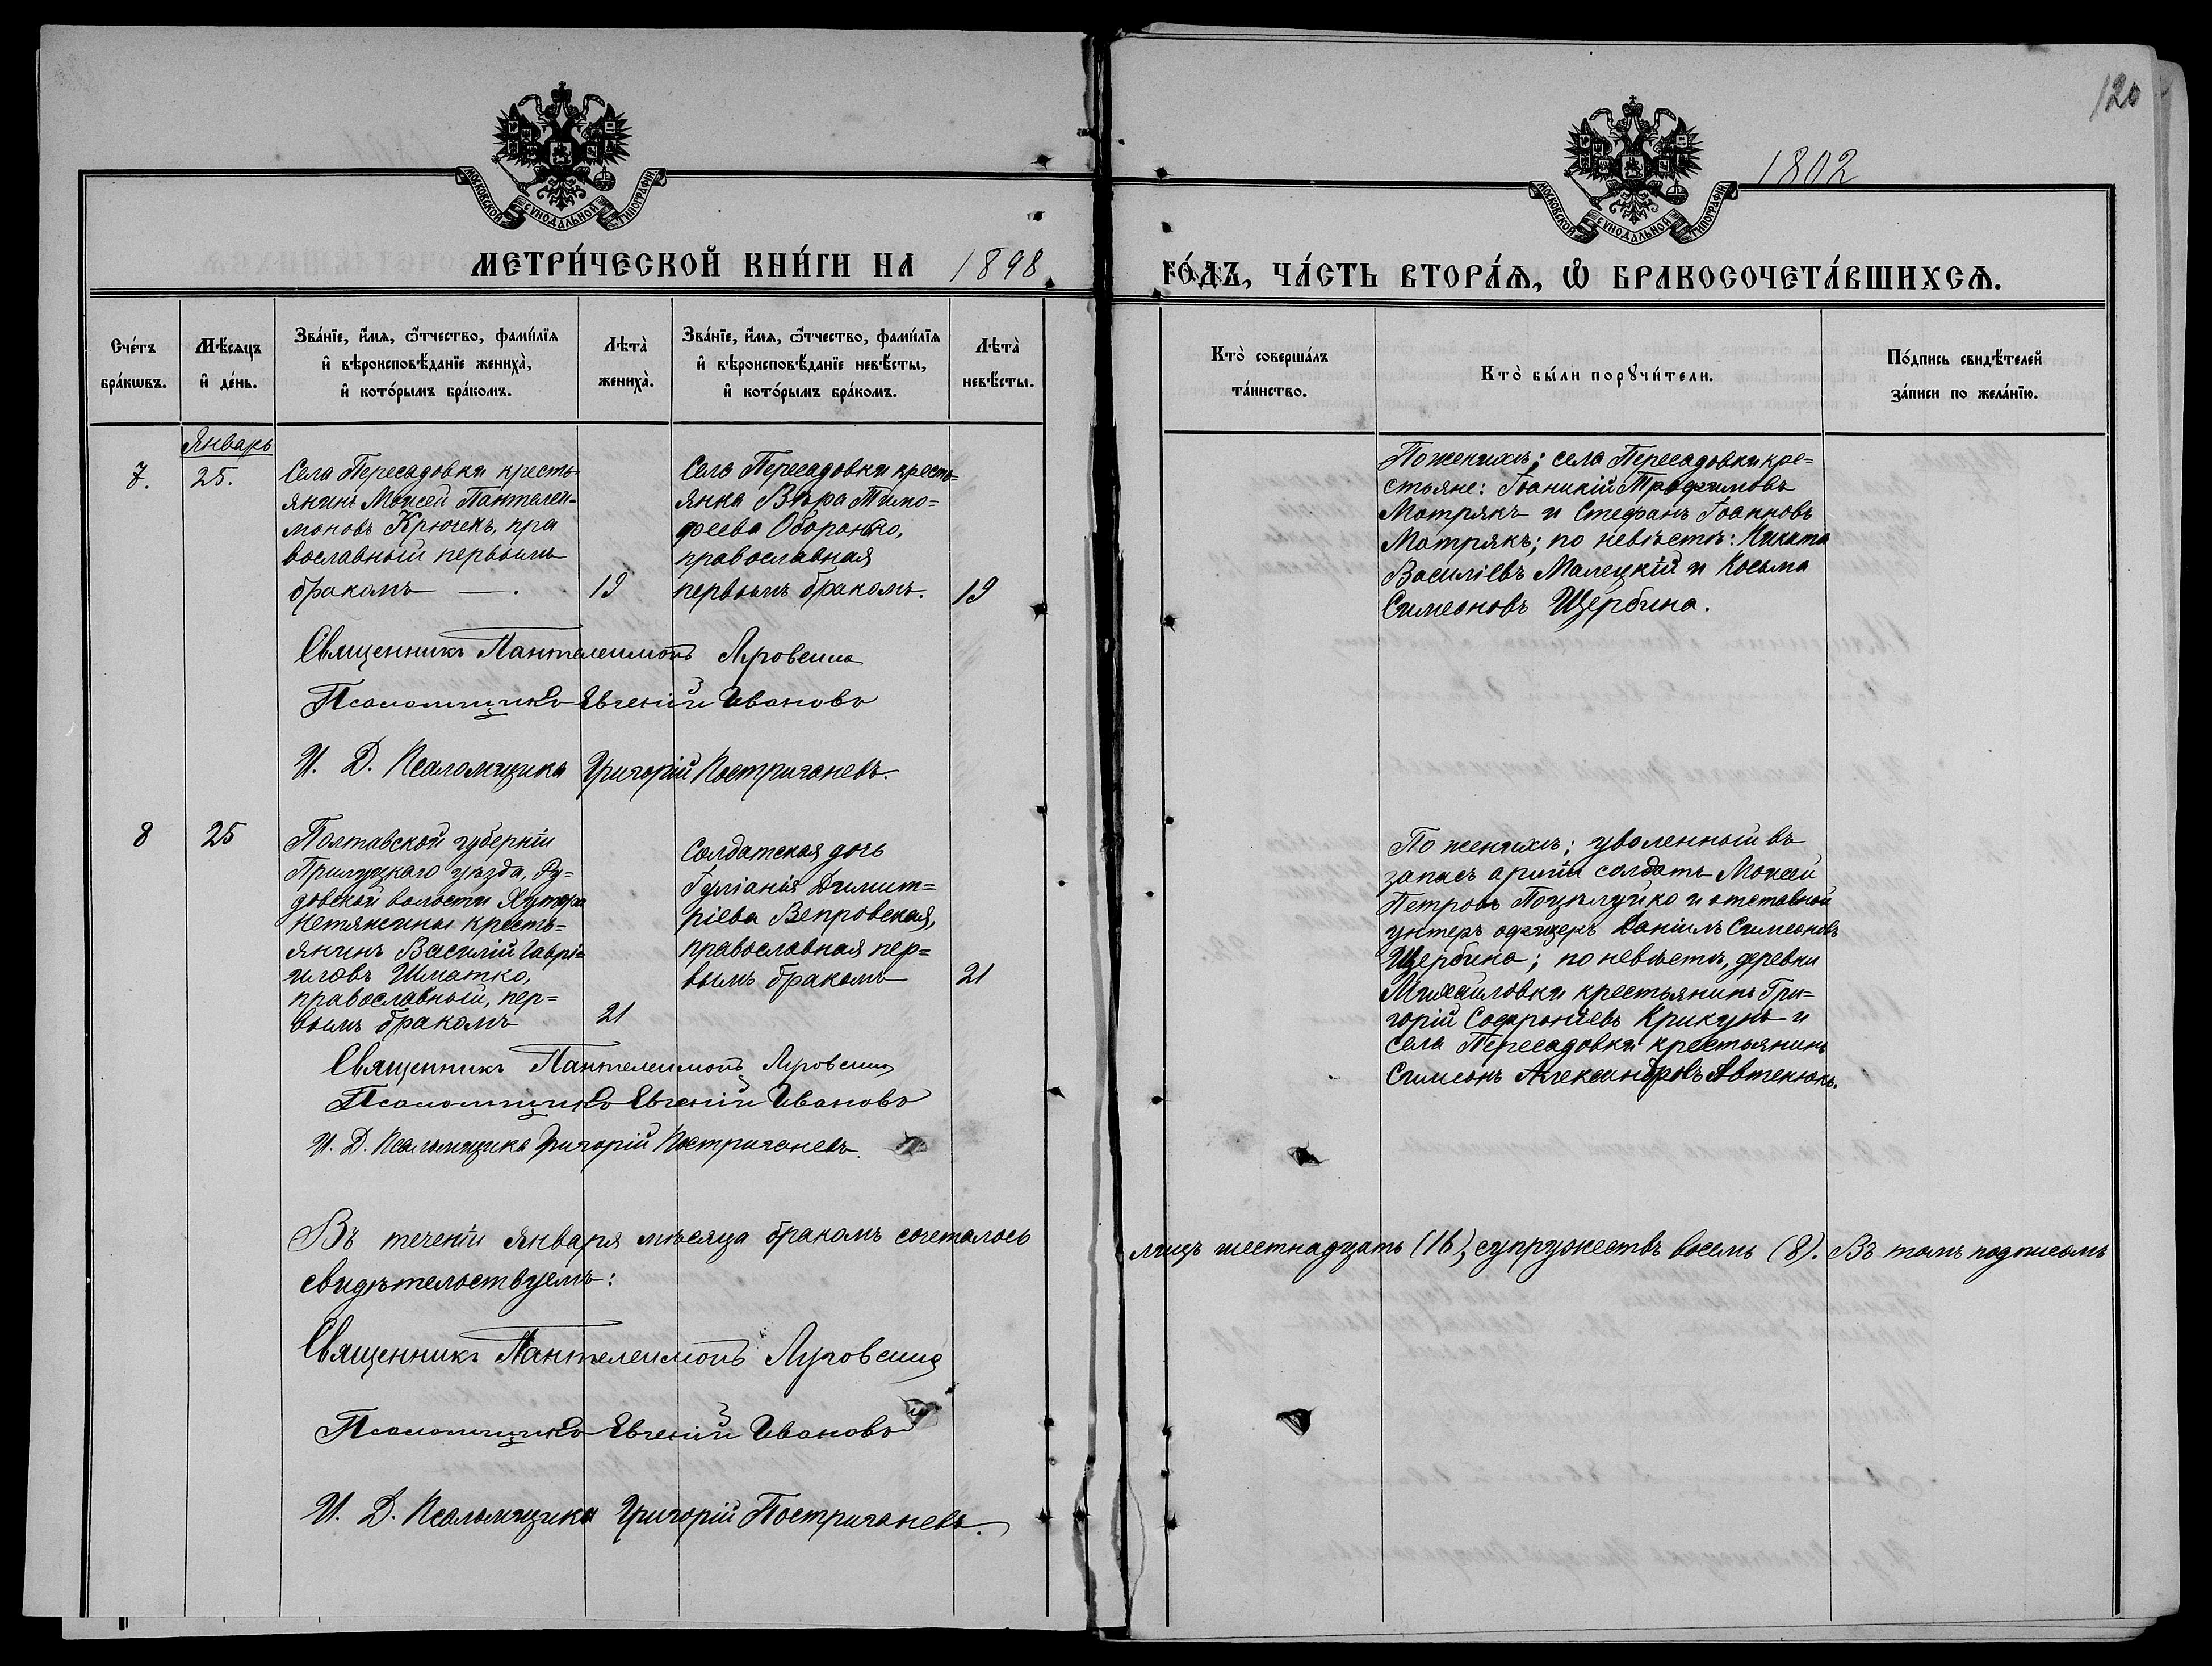 120
1802
МОСКОВСКОЙ СѴНОДАЛЬНОЙ ТИПОГРАФІИ
МОСКОВСКОЙ СѴНОДАЛЬНОЙ ТИПОГРАФІИ
МЕТРИ́ЧЕСКОЙ КНИ́ГИ НА 1898 ГО́ДЪ, ЧА́СТЬ ВТОРА́Ѧ, Ѽ БРАКОСОЧЕТА́ВШИХСѦ.
Сче́тъ
бра́кѡвъ.
Мѣ́сяцъ
и҆ де́нь.
Зва́нїе, и҆́мя, ѻ҆́тчество, фами́лїя
и҆ вѣроисповѣ́данїе жениха̀,
и҆ кото́рымъ бра́комъ.
Лѣта̀
жениха̀.
Зва́нїе, и҆́мя, ѻ҆́тчество, фами́лїя
и҆ вѣроисповѣ́данїе невѣ́сты,
и҆ кото́рымъ бра́комъ.
Лѣта̀
невѣ́сты.
Кто̀ соверша́лъ
та́инство.
Кто̀ бы́ли порꙋчи́тели.
По́дпись свидѣ́телей
за́писи по жела́нїю.
Январь
7.
25.
Села Пересадовки кресть-
янинъ Моисей Пантелеи-
моновъ Крючекъ, пра
вославный первымъ
бракомъ
19
Села Пересадовки кресть-
янка Вѣра Тимо-
феева Оборонко,
православная
первымъ бракомъ.
19
По женихѣ; села Пересадовки кре-
стьяне: Іоаникій Трофимовъ
Мотрякъ и Стефанъ Іоанновъ
Мотрякъ; по невѣстѣ: Никита
Василіевъ Малецкій и Косьма
Симеоновъ Щербина.
Священникъ Пантелеимонъ
Псаломщикъ Евгеній Ивановъ
И. Д. Псаломщика Григорій Постриганевъ.
8
25
Полтавской губерніи
Прилуцкаго уѣзда, Ру-
довской волости Хутора
Кетяжины кресть-
янинъ Василій Гаврі-
иловъ Шматко,
православный, пер-
вымъ бракомъ
21
Солдатская дочь
Іуліанія Димит-
ріева Вепровская,
православная пер-
вымъ бракомъ
21
По женихѣ; уволенный въ
запасъ арміи солдатъ Моисей
Петровъ Поцѣлуйко и отставной
унтеръ офицеръ Даніилъ Симеоновъ
Щербина; по невѣстѣ, деревни
Михайловки крестьянинъ Гри-
горій Софроніевъ Крикунъ и
села Пересадовки крестьянинъ
Симеонъ Александровъ Автенюкъ.
Священникъ Пантелеимонъ
Псаломщикъ Евгеній Ивановъ
И. Д. Псаломщика Григорій Постриганевъ.
Въ теченіи Января мѣсяца бракомъ сочеталось лицъ шестнадцать (16), супружествъ восемь (8). Въ томъ подписомъ
свидѣтельствуемъ:
Священникъ Пантелеимонъ
Псаломщикъ Евгеній Ивановъ
И. Д. Псаломщика Григорій Постриганевъ.